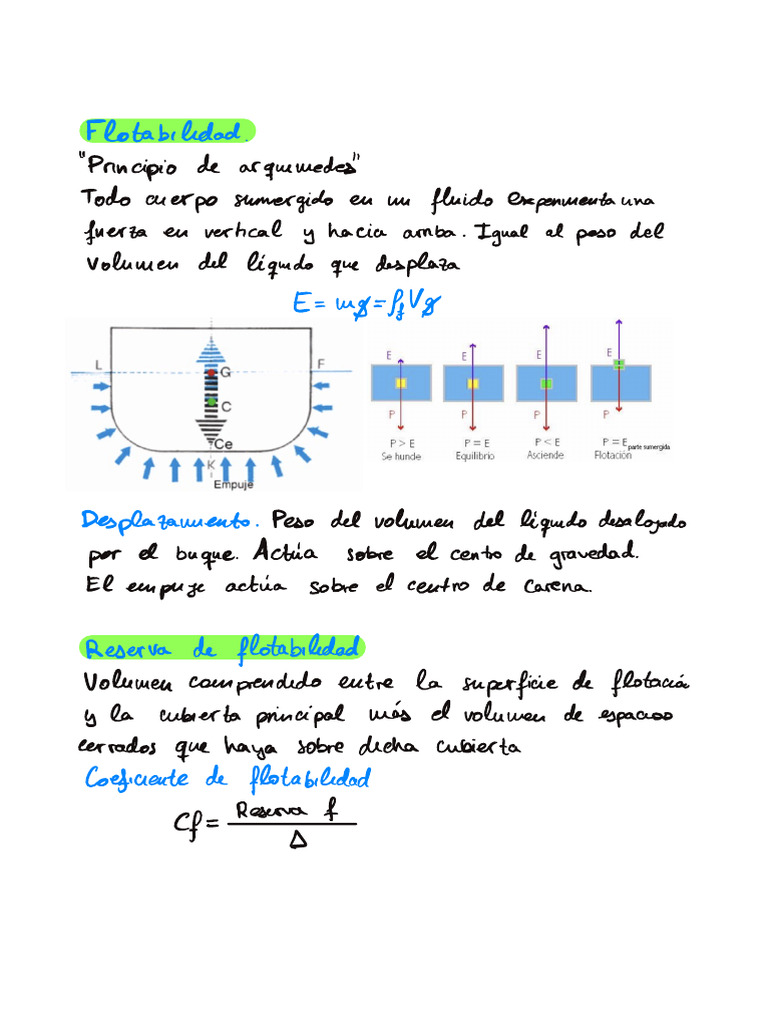 Flotabilidad.
"Principio de arquimedes"
Todo cuerpo sumergido en un fluido experimenta una
fuerza en vertical y hacia arriba. Igual al peso del
volumen del líquido que desplaza
E = mg = ρf V g
L
F
G
C
Ce
K
Empuje
E E E E
P P P P
P > E P = E P < E P = E parte sumergida
Se hunde Equilibrio Asciende Flotación
Desplazamiento. Peso del volumen del líquido desalojado
por el buque. Actúa sobre el cento de gravedad.
El empuje actúa sobre el centro de carena.
Reserva de flotabilidad
Volumen comprendido entre la superficie de flotación
y la cubierta principal más el volumen de espacios
cerrados que haya sobre dicha cubierta
Coeficiente de flotabilidad
Cf = Reserva f / Δ